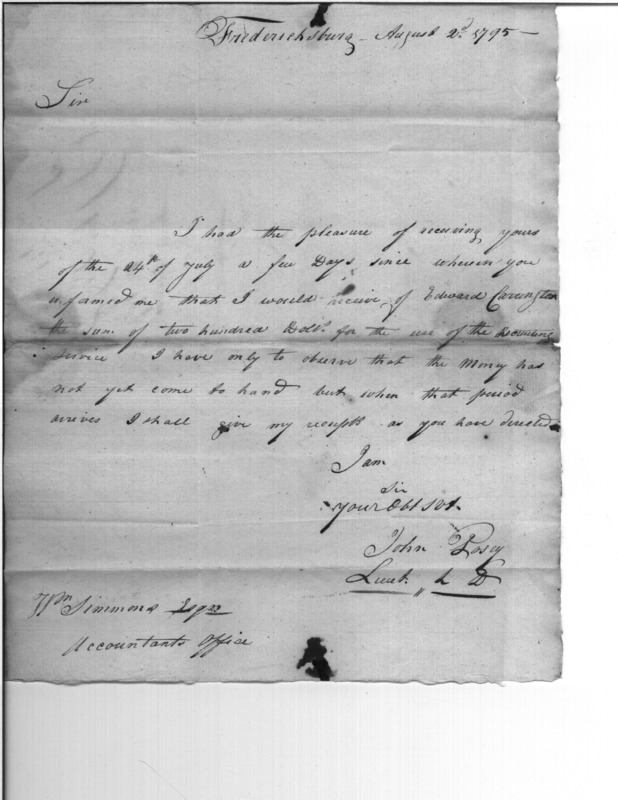 Fredericksburg - August 2d. 1795 -
Sir
I had the pleasure of receiving yours
of the 24th of July a few Days since wherein you
informed me that I would receive of Edward Carrington
the sum of two hundred Dolls. for the use of the
service I have only to observe that the Money has
not yet come to hand but when that period
arrives I shall give my receipts as you have directed
I am
Sir
your Obt Svt.
John Posey
Lieut. L D
Wm Simmons Esqre
Accountants Office